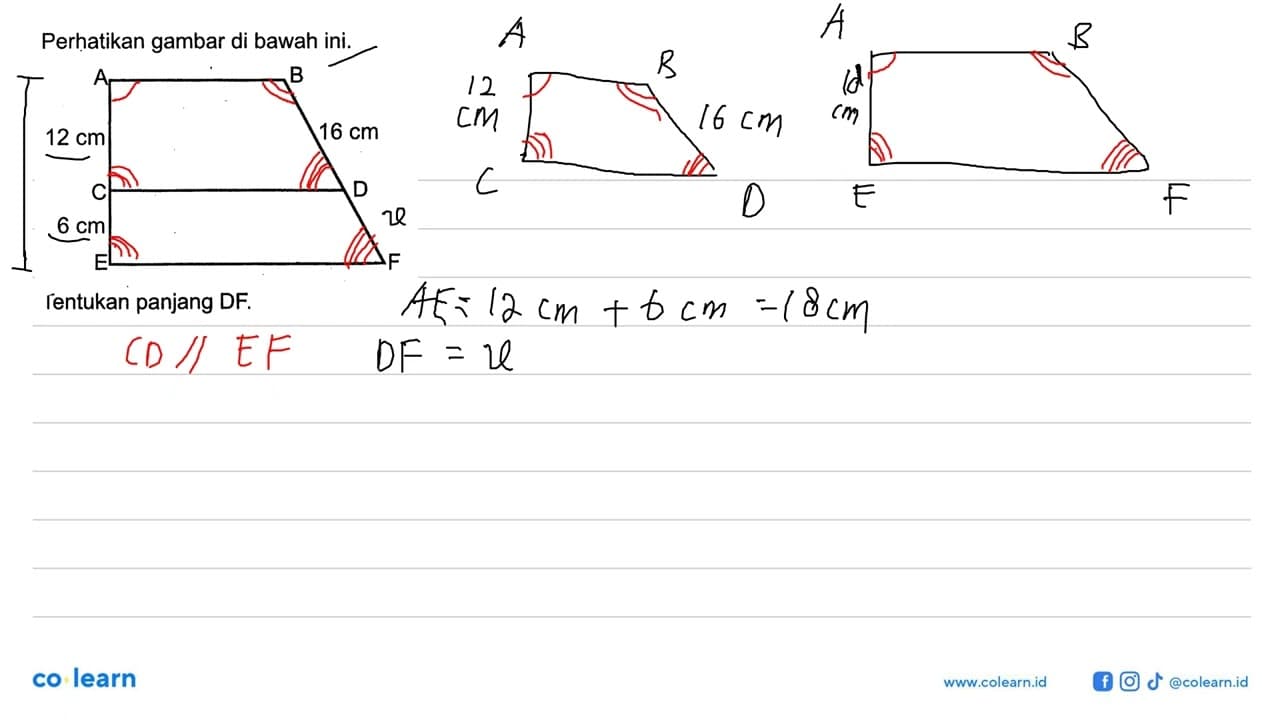 Perhatikan gambar di bawah ini.
A B
12 cm
16 cm
C D
6 cm
x
E F
Tentukan panjang DF.
CD // EF
A
B
12
cm
16 cm
C
D
A
B
cm
E
F
AE = 12 cm + 6 cm = 18 cm
DF = x
co learn
www.colearn.id
@colearn.id